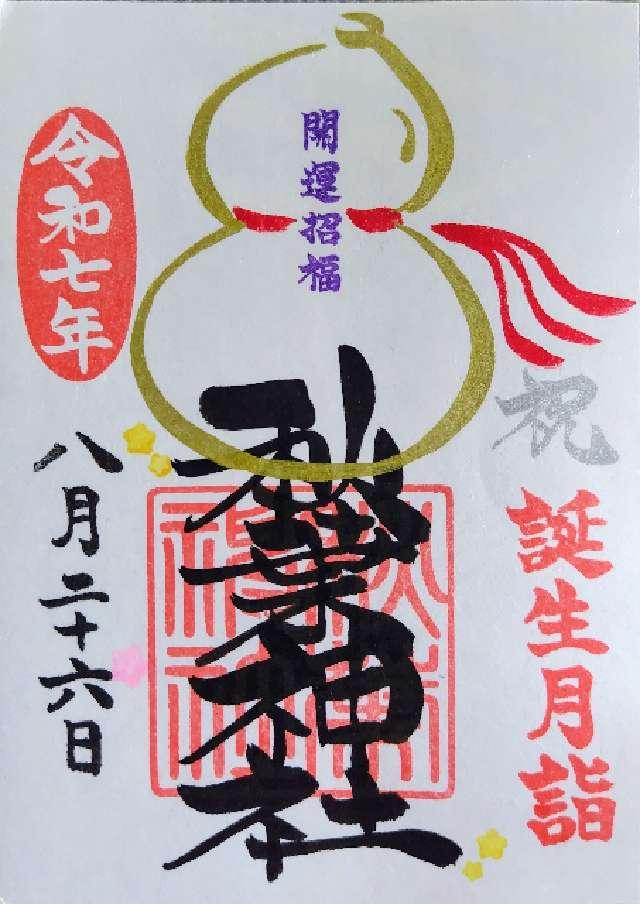 祝
誕生月詣
開運招福
秋葉神社
令和七年
八月二十六日